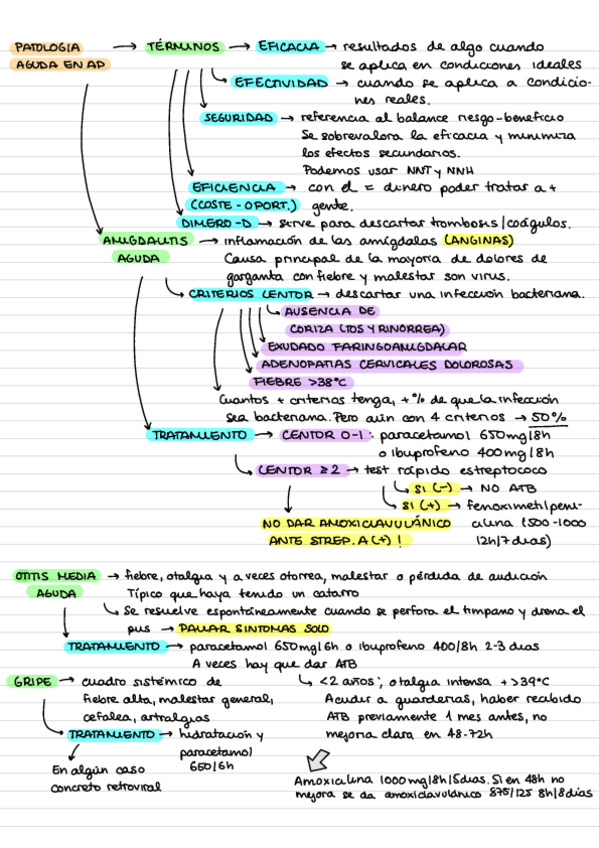 PATOLOGIA AGUDA EN AP → TÉRMINOS → EFICACIA → resultados de algo cuando
se aplica en condiciones ideales
EFECTIVIDAD → cuando se aplica a condicio-
nes reales.
SEGURIDAD → referencia al balance riesgo-beneficio
Se sobrevalora la eficacia y minimiza
los efectos secundarios.
Podemos usar NNT y NNH
EFICIENCIA → con el = dinero poder tratar a +
(COSTE-OPORT.) gente.
DIMERO-D → sirve para descartar trombosis/coágulos.
AMIGDALITIS → inflamación de las amígdalas (ANGINAS)
AGUDA Causa principal de la mayoría de dolores de
garganta con fiebre y malestar son virus.
CRITERIOS CENTOR → descartar una infección bacteriana.
AUSENCIA DE
CORIZA (TOS Y RINORREA)
EXUDADO FARINGOAMIGDALAR
ADENOPATIAS CERVICALES DOLOROSAS
FIEBRE >38°C
Cuantos + criterios tenga, +% de que la infección
sea bacteriana. Pero aún con 4 criterios → 50%
TRATAMIENTO → CENTOR 0-1: paracetamol 650mg/8h
o ibuprofeno 400mg/8h
CENTOR ≥2 → test rápido estreptococo
SI (-) → NO ATB
SI (+) → fenoximetilpeni-
cilina (500-1000
12h/7dias)
NO DAR AMOXICLAVULÁNICO
ANTE STREP. A (+)!
OTITIS MEDIA → fiebre, otalgia y a veces otorrea, malestar o pérdida de audición
AGUDA Típico que haya tenido un catarro
Se resuelve espontáneamente cuando se perfora el timpano y drena el
pus → PALIAR SINTOMAS SOLO
TRATAMIENTO → paracetamol 650mg/6h o ibuprofeno 400/8h 2-3 dias
A veces hay que dar ATB
<2 años; otalgia intensa + >39°C
Acudir a guarderias, haber recibido
ATB previamente 1 mes antes, no
mejoria clara en 48-72h
Amoxicilina 1000mg/8h/5dias. Si en 48h no
mejora se da amoxiclavulánico 875/125 8h/8dias
GRIPE → cuadro sistémico de
fiebre alta, malestar general,
cefalea, artralgias
TRATAMIENTO → hidratación y
paracetamol
650/6h
En algún caso
concreto retroviral